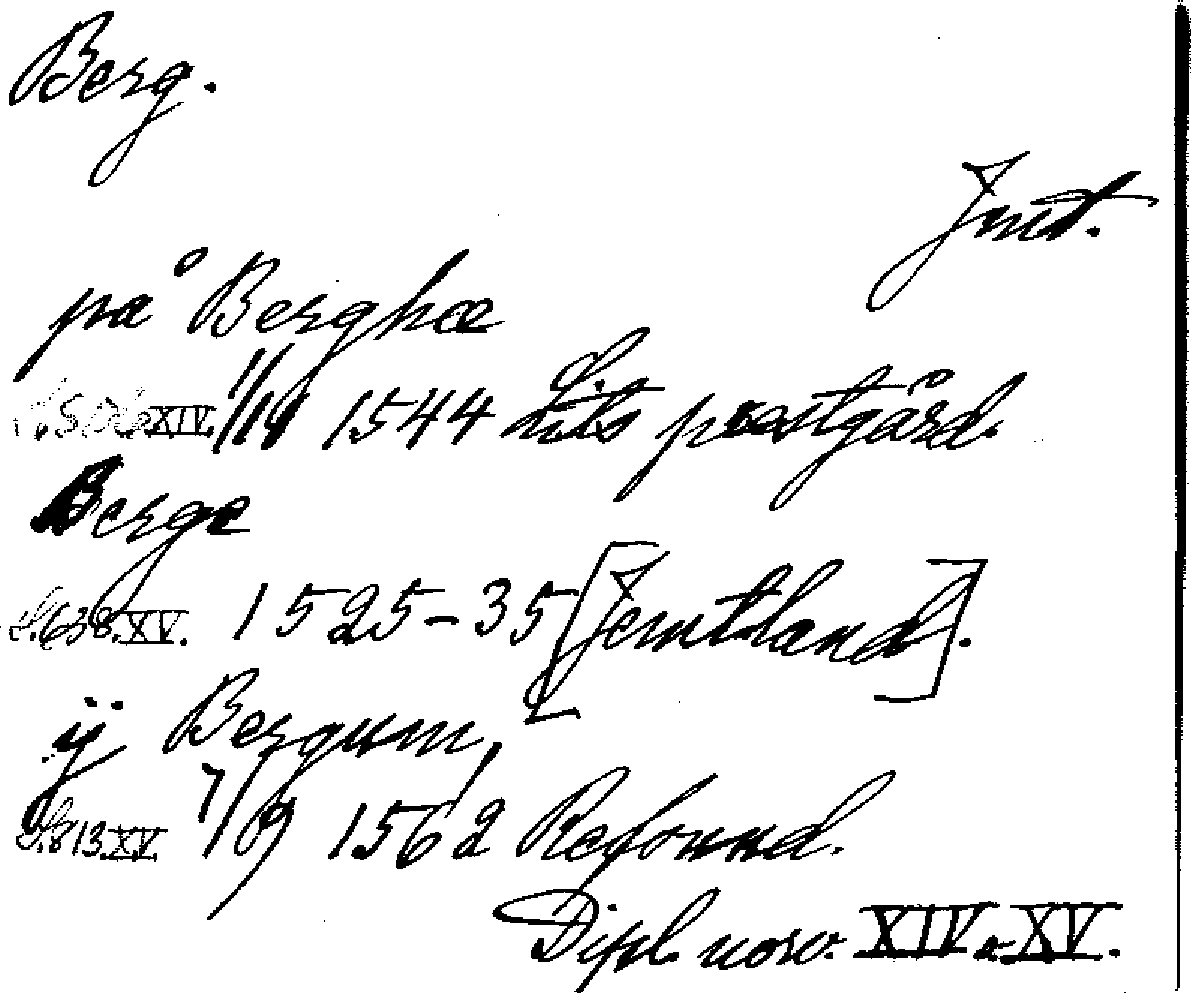 Berg.
Jmt.
på Berghæ
XIV. 1544 Lits prestgård.
Berge
S. 638. XV. 1525-35 [Jemtland].
ÿ Bergum,
S. 813 XV. 7/9 1562 Refsund.
Dipl. norv. XIV o. XV.